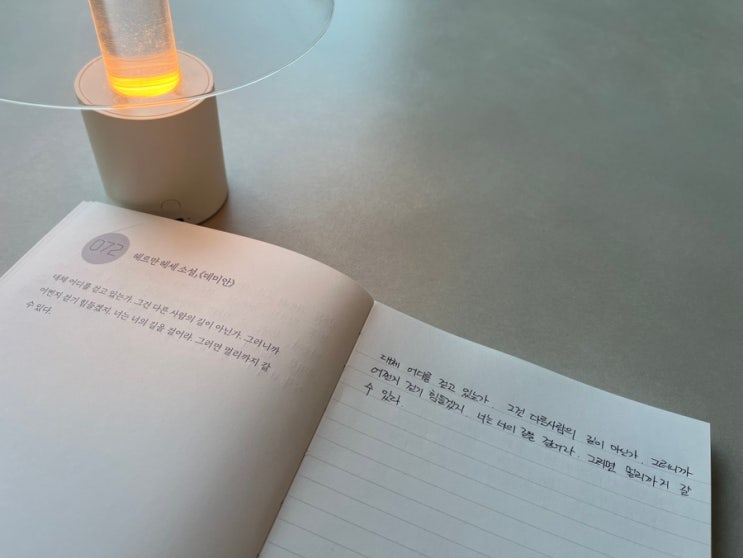 072
헤르만 헤세 소설, 《데미안》
대체 어디를 걷고 있는가. 그건 다른 사람의 길이 아닌가. 그러니까
어쩐지 걷기 힘들겠지. 너는 너의 길을 걸어라. 그러면 멀리까지 갈
수 있다.
대체 어디를 걷고 있는가 그건 다른사람의 길이 아닌가. 그러니까
어쩐지 걷기 힘들겠지. 너는 너의 길을 걸어라. 그러면 멀리까지 갈
수 있다